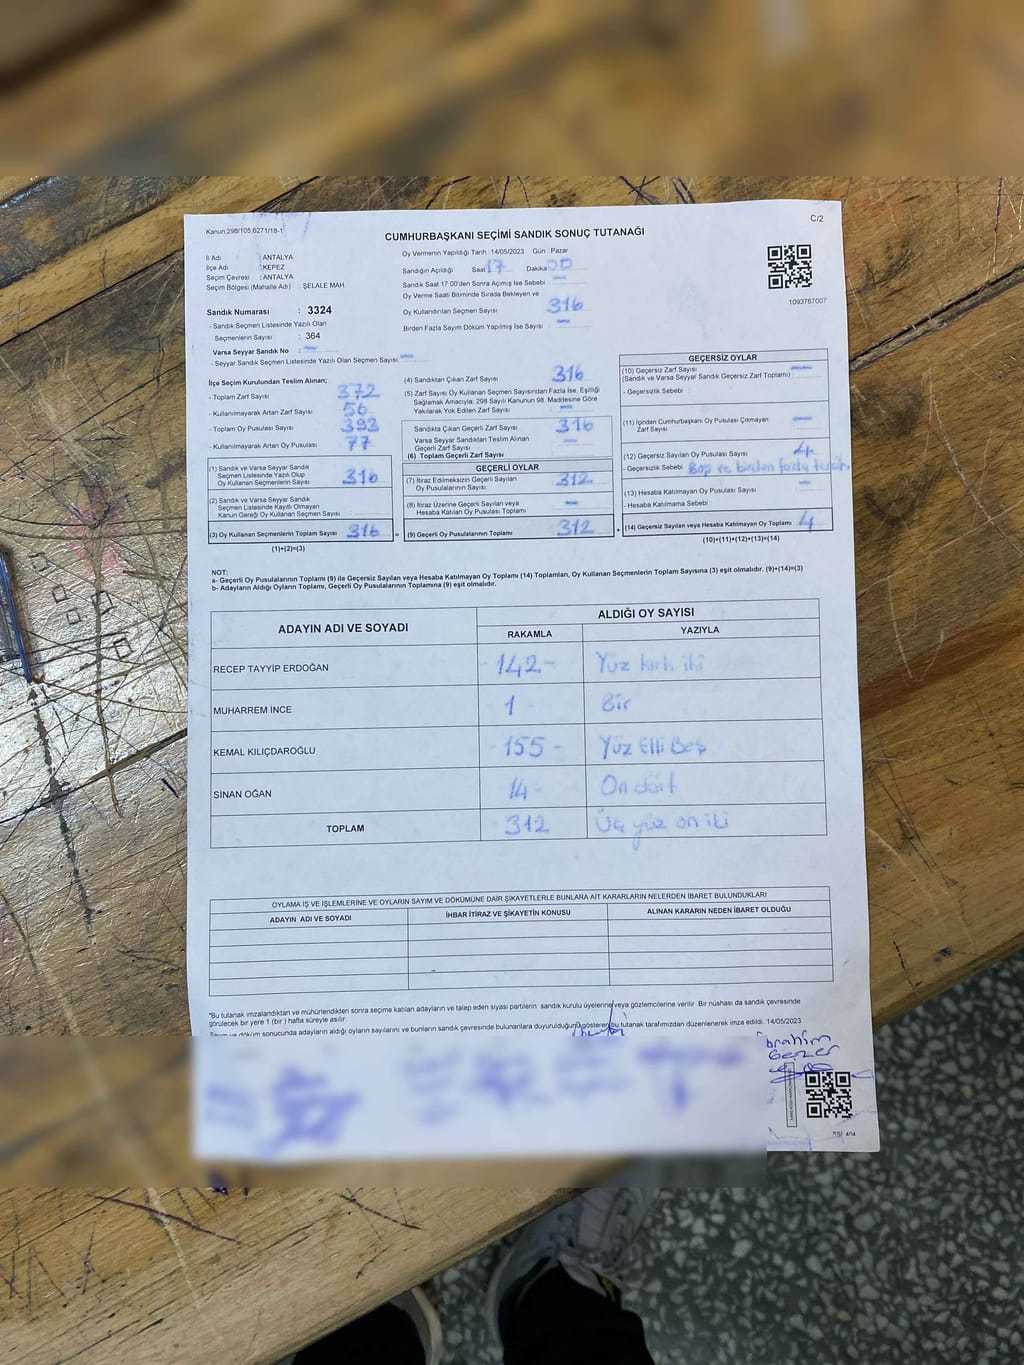 Kanun:298/105,6271/18-1
C/2
CUMHURBAŞKANI SEÇİMİ SANDIK SONUÇ TUTANAĞI
İl Adı : ANTALYA
İlçe Adı : KEPEZ
Seçim Çevresi : ANTALYA
Seçim Bölgesi (Mahalle Adı) : ŞELALE MAH.
Oy Vermenin Yapıldığı Tarih : 14/05/2023 Gün : Pazar
Sandığın Açıldığı Saat 17 Dakika 00
Sandık Saat 17:00'den Sonra Açımış İse Sebebi —
Oy Verme Saati Bitiminde Sırada Bekleyen ve
Oy Kullandırılan Seçmen Sayısı 316
Birden Fazla Sayım Döküm Yapılmış İse Sayısı —
1093767007
Sandık Numarası : 3324
- Sandık Seçmen Listesinde Yazılı Olan
Seçmenlerin Sayısı : 364
Varsa Seyyar Sandık No : —
- Seyyar Sandık Seçmen Listesinde Yazılı Olan Seçmen Sayısı —
İlçe Seçim Kurulundan Teslim Alınan;
- Toplam Zarf Sayısı 372
- Kullanılmayarak Artan Zarf Sayısı 56
- Toplam Oy Pusulası Sayısı 393
- Kullanılmayarak Artan Oy Pusulası 77
(1) Sandık ve Varsa Seyyar Sandık
Seçmen Listesinde Yazılı Olup
Oy Kullanan Seçmenlerin Sayısı 316
(2) Sandık ve Varsa Seyyar Sandık
Seçmen Listesinde Kayıtlı Olmayan
Kanun Gereği Oy Kullanan Seçmen Sayısı
(3) Oy Kullanan Seçmenlerin Toplam Sayısı 316
(1)+(2)=(3)
(4) Sandıktan Çıkan Zarf Sayısı 316
(5) Zarf Sayısı Oy Kullanan Seçmen Sayısından Fazla İse, Eşitliği
Sağlamak Amacıyla; 298 Sayılı Kanunun 98. Maddesine Göre
Yakılarak Yok Edilen Zarf Sayısı —
Sandıkta Çıkan Geçerli Zarf Sayısı 316
Varsa Seyyar Sandıktan Teslim Alınan
Geçerli Zarf Sayısı —
(6) Toplam Geçerli Zarf Sayısı
GEÇERLİ OYLAR
(7) İtiraz Edilmeksizin Geçerli Sayılan
Oy Pusulalarının Sayısı 312
(8) İtiraz Üzerine Geçerli Sayılan veya
Hesaba Katılan Oy Pusulası Toplamı —
= (9) Geçerli Oy Pusulalarının Toplamı 312
GEÇERSİZ OYLAR
(10) Geçersiz Zarf Sayısı —
(Sandık ve Varsa Seyyar Sandık Geçersiz Zarf Toplamı)
- Geçersizlik Sebebi
(11) İçinden Cumhurbaşkanı Oy Pusulası Çıkmayan
Zarf Sayısı —
(12) Geçersiz Sayılan Oy Pusulası Sayısı 4
- Geçersizlik Sebebi Boş ve birden fazla tercih
(13) Hesaba Katılmayan Oy Pusulası Sayısı —
- Hesaba Katılmama Sebebi
+ (14) Geçersiz Sayılan veya Hesaba Katılmayan Oy Toplamı 4
(10)+(11)+(12)+(13)=(14)
NOT:
a- Geçerli Oy Pusulalarının Toplamı (9) ile Geçersiz Sayılan veya Hesaba Katılmayan Oy Toplamı (14) Toplamları, Oy Kullanan Seçmenlerin Toplam Sayısına (3) eşit olmalıdır. (9)+(14)=(3)
b- Adayların Aldığı Oyların Toplamı, Geçerli Oy Pusulalarının Toplamına (9) eşit olmalıdır.
ADAYIN ADI VE SOYADI
ALDIĞI OY SAYISI
RAKAMLA YAZIYLA
RECEP TAYYİP ERDOĞAN -142- Yüz kırk iki
MUHARREM İNCE 1 Bir
KEMAL KILIÇDAROĞLU -155- Yüz Elli Beş
SİNAN OĞAN 14- On dört
TOPLAM 312 Üç yüz on iki
OYLAMA İŞ VE İŞLEMLERİNE VE OYLARIN SAYIM VE DÖKÜMÜNE DAİR ŞİKAYETLERLE BUNLARA AİT KARARLARIN NELERDEN İBARET BULUNDUKLARI
ADAYIN ADI VE SOYADI İHBAR İTİRAZ VE ŞİKAYETİN KONUSU ALINAN KARARIN NEDEN İBARET OLDUĞU
*Bu tutanak imzalandıktan ve mühürlendikten sonra seçime katılan adayların ve talep eden siyasi partilerin sandık kurulu üyelerine/veya gözlemcilerine verilir. Bir nüshası da sandık çevresinde
görülecek bir yere 1 (bir) hafta süreyle asılır.
Sayım ve döküm sonucunda adayların aldığı oyların sayılarını ve bunların sandık çevresinde bulunanlara duyurulduğunu gösteren bu tutanak tarafımızdan düzenlenerek imza edildi. 14/05/2023
İbrahim
Gezer